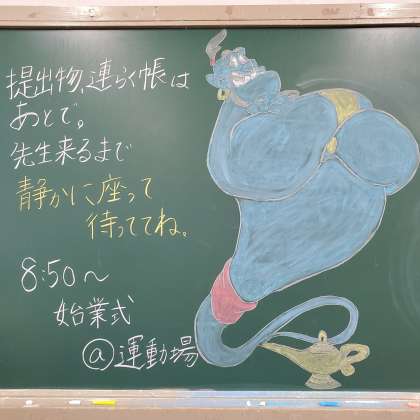 提出物、連らく帳は
あとで。
先生来るまで
静かに座って
待っててね。
8:50〜
始業式
@運動場